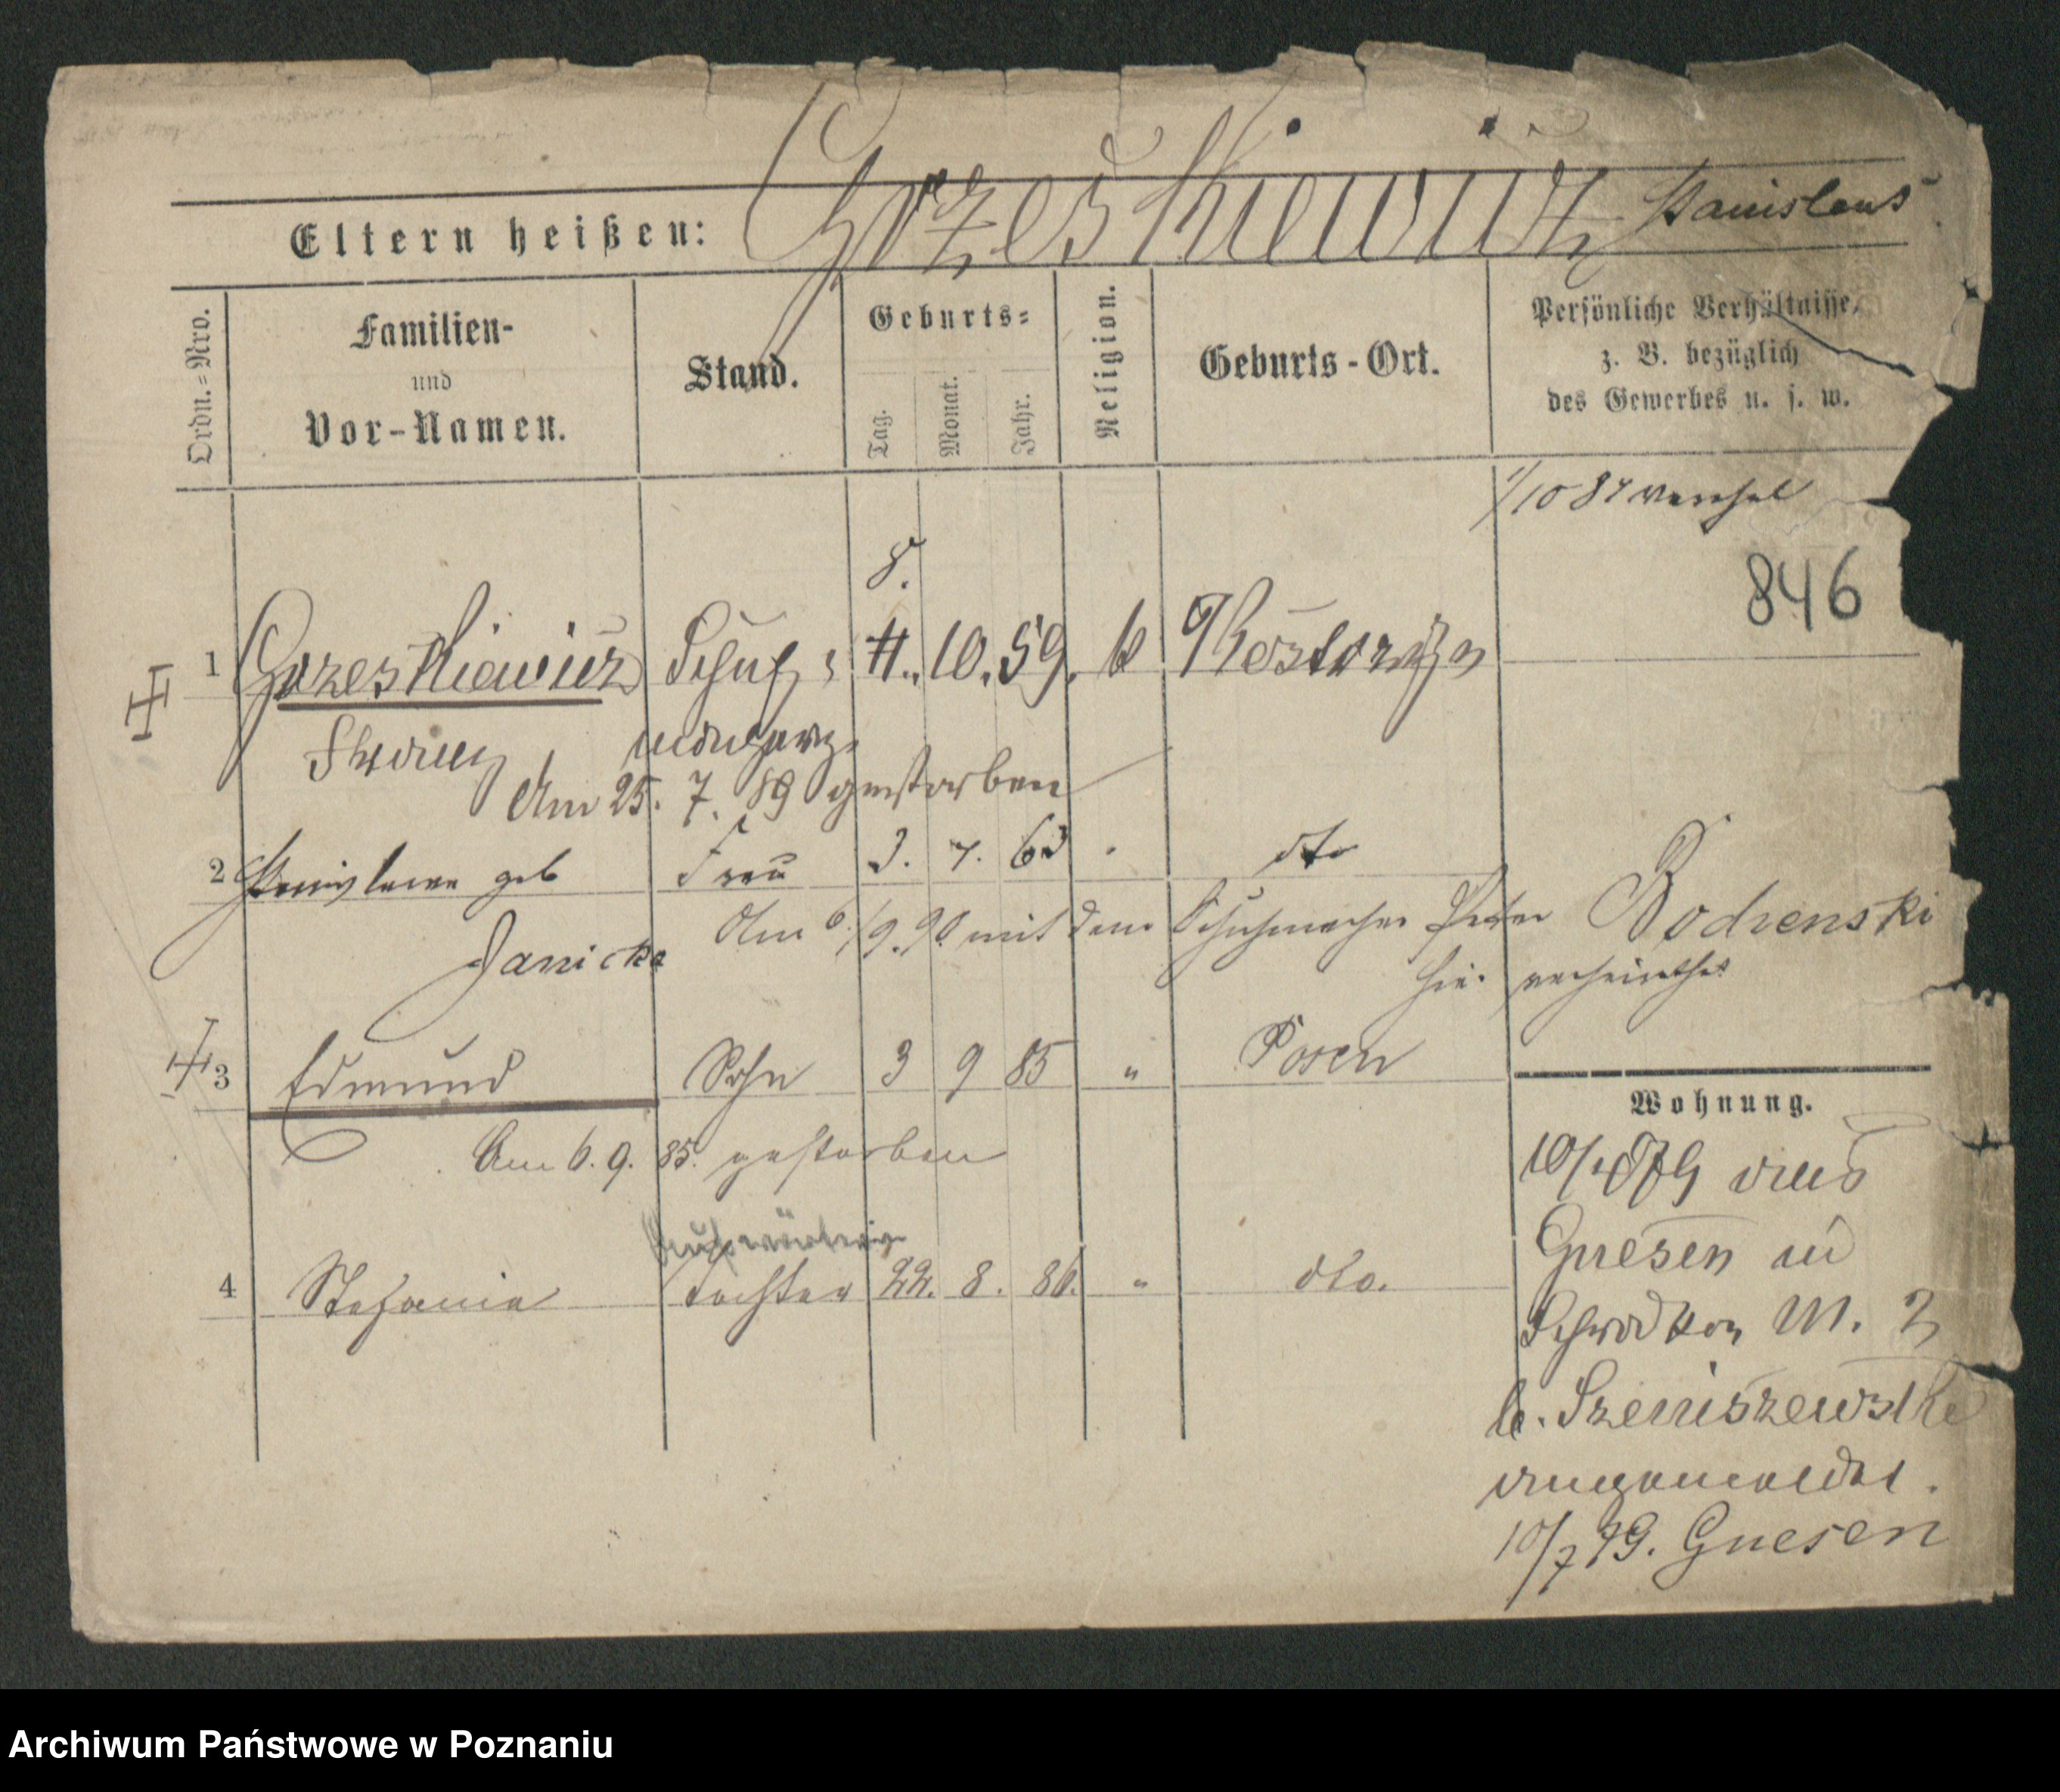 Eltern heißen: Gorzeskiewicz Stanislaus
Ordn.=Nro.
Familien-
und
Vor-Namen.
Stand.
Geburts=
Tag.
Monat.
Jahr.
Religion.
Geburts-Ort.
Persönliche Verhältnisse,
z. B. bezüglich
des Gewerbes u. s. w.
1/10 87
846
8.
1 Gorzeskiewicz Schuh 4. 10. 59. k Kostrzyn
Am 25. 7. 89 gestorben
2 geb Frau 3. 7. 63 dto
Janicka
Am 6/9. 90 mit dem Schuhmacher Peter Bodienski
hier verheirathet
3 Edmund Sohn 3 9 85 " Posen
Am 6. 9. 85. gestorben
4 Stefania Tochter 22. 8. 86. " dto.
Wohnung.
aus
Gnesen in
Schrodka M. 2
b. Szeniszewski
angemeldet.
10/7 79. Gnesen
Archiwum Państwowe w Poznaniu